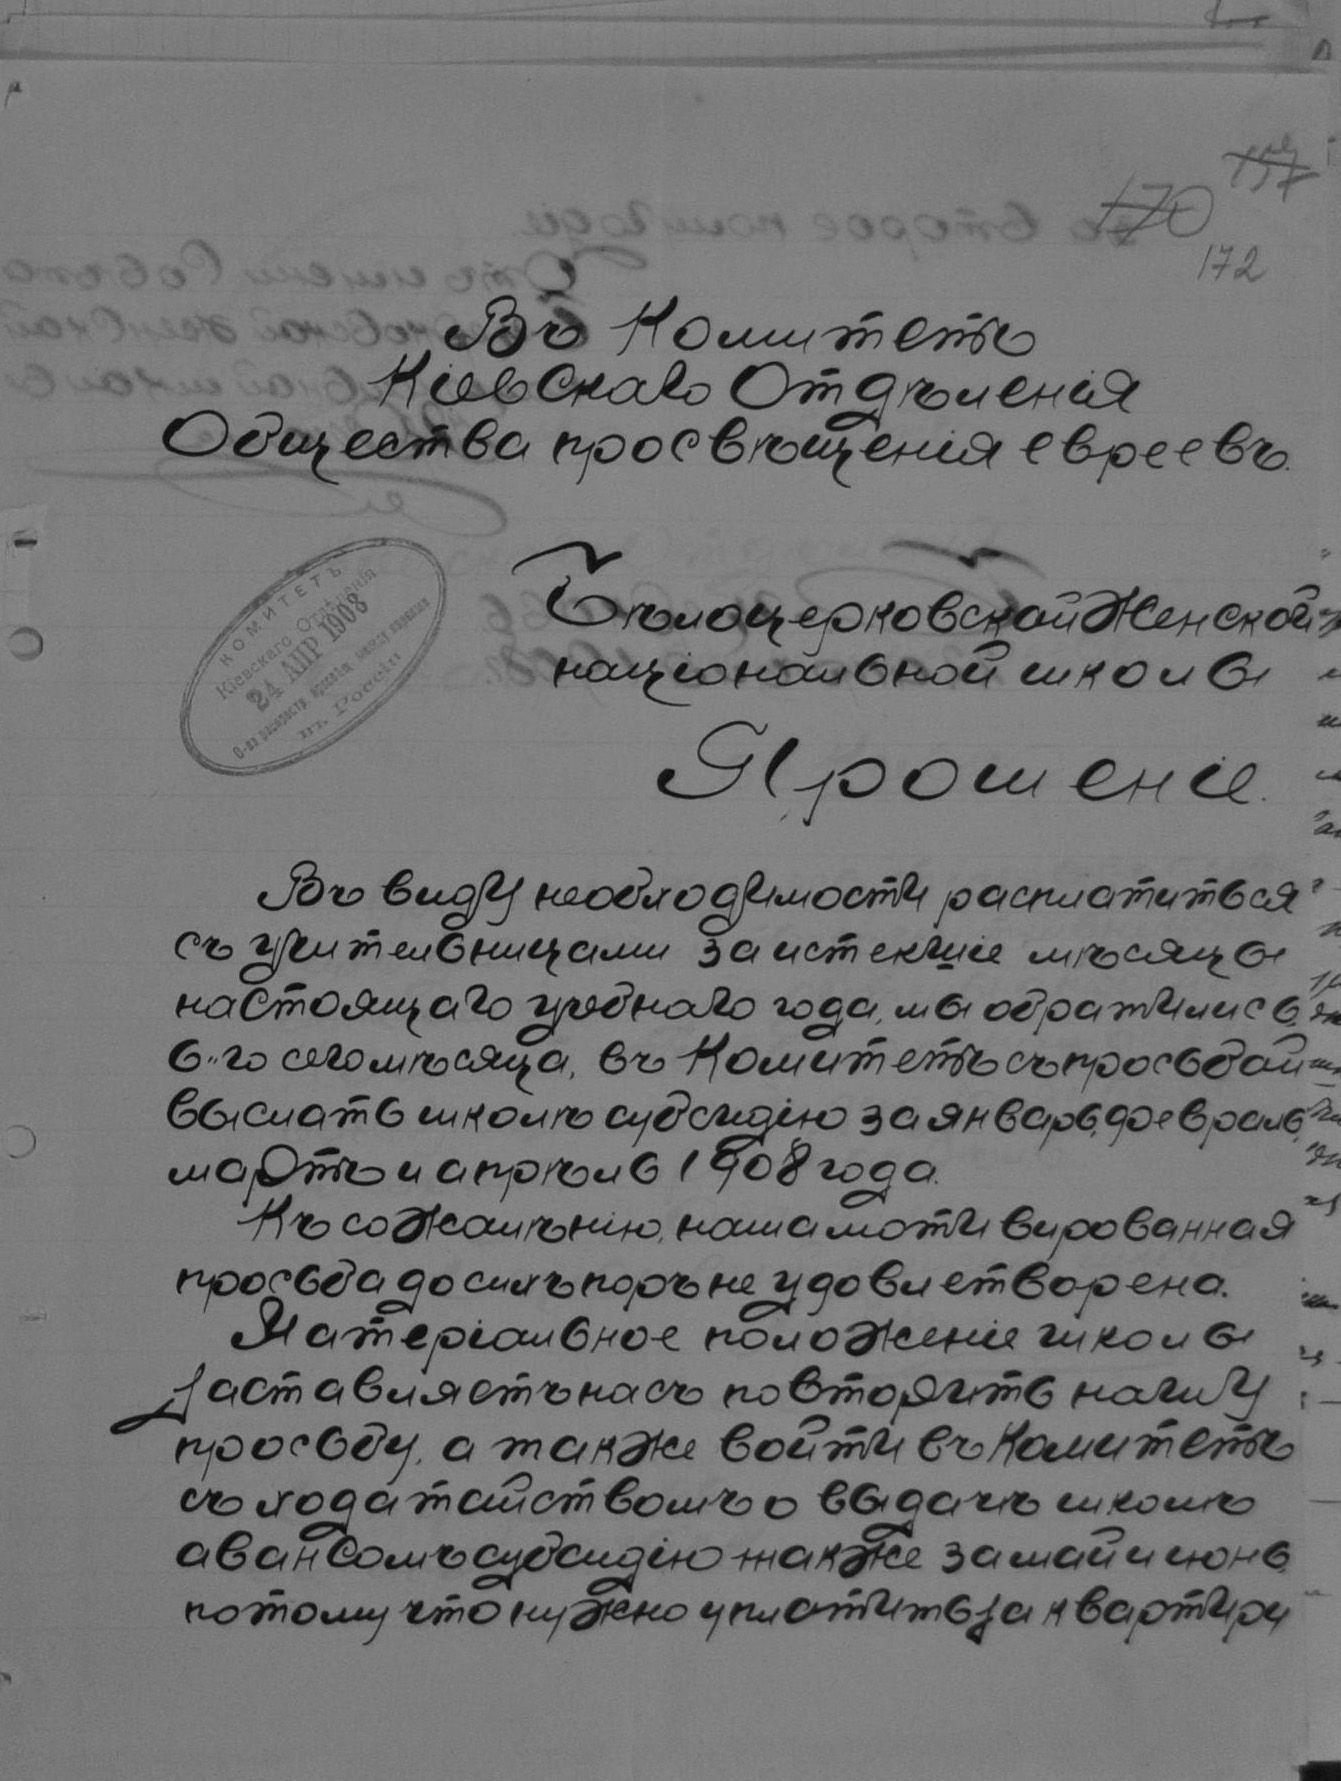 157
170
172
Въ Комитетъ
Кіевскаго Отдѣленія
Общества просвѣщенія евреевъ.
Бѣлоцерковской Женской
національной школы
КОМИТЕТЪ
Кіевскаго Отдѣленія
24 АПР 1908
О-ва распростр. просвѣщ. между евреями
въ Россіи
Прошеніе.
Въ виду необходимости расплатиться
съ учительницами за истекшіе мѣсяцы
настоящаго учебнаго года, мы обратились,
6-го сего мѣсяца, въ Комитетъ съ просьбой
выслать школѣ субсидію за январь, февраль,
мартъ и апрѣль 1908 года.
Къ сожалѣнію, наша мотивированная
просьба до сихъ поръ не удовлетворена.
Матеріальное положеніе школы
заставляетъ насъ повторить нашу
просьбу, а также войти въ Комитетъ
съ ходатайствомъ о выдачѣ школѣ
авансомъ субсидію также за май и іюнь,
потому что нужно уплатить за квартиру